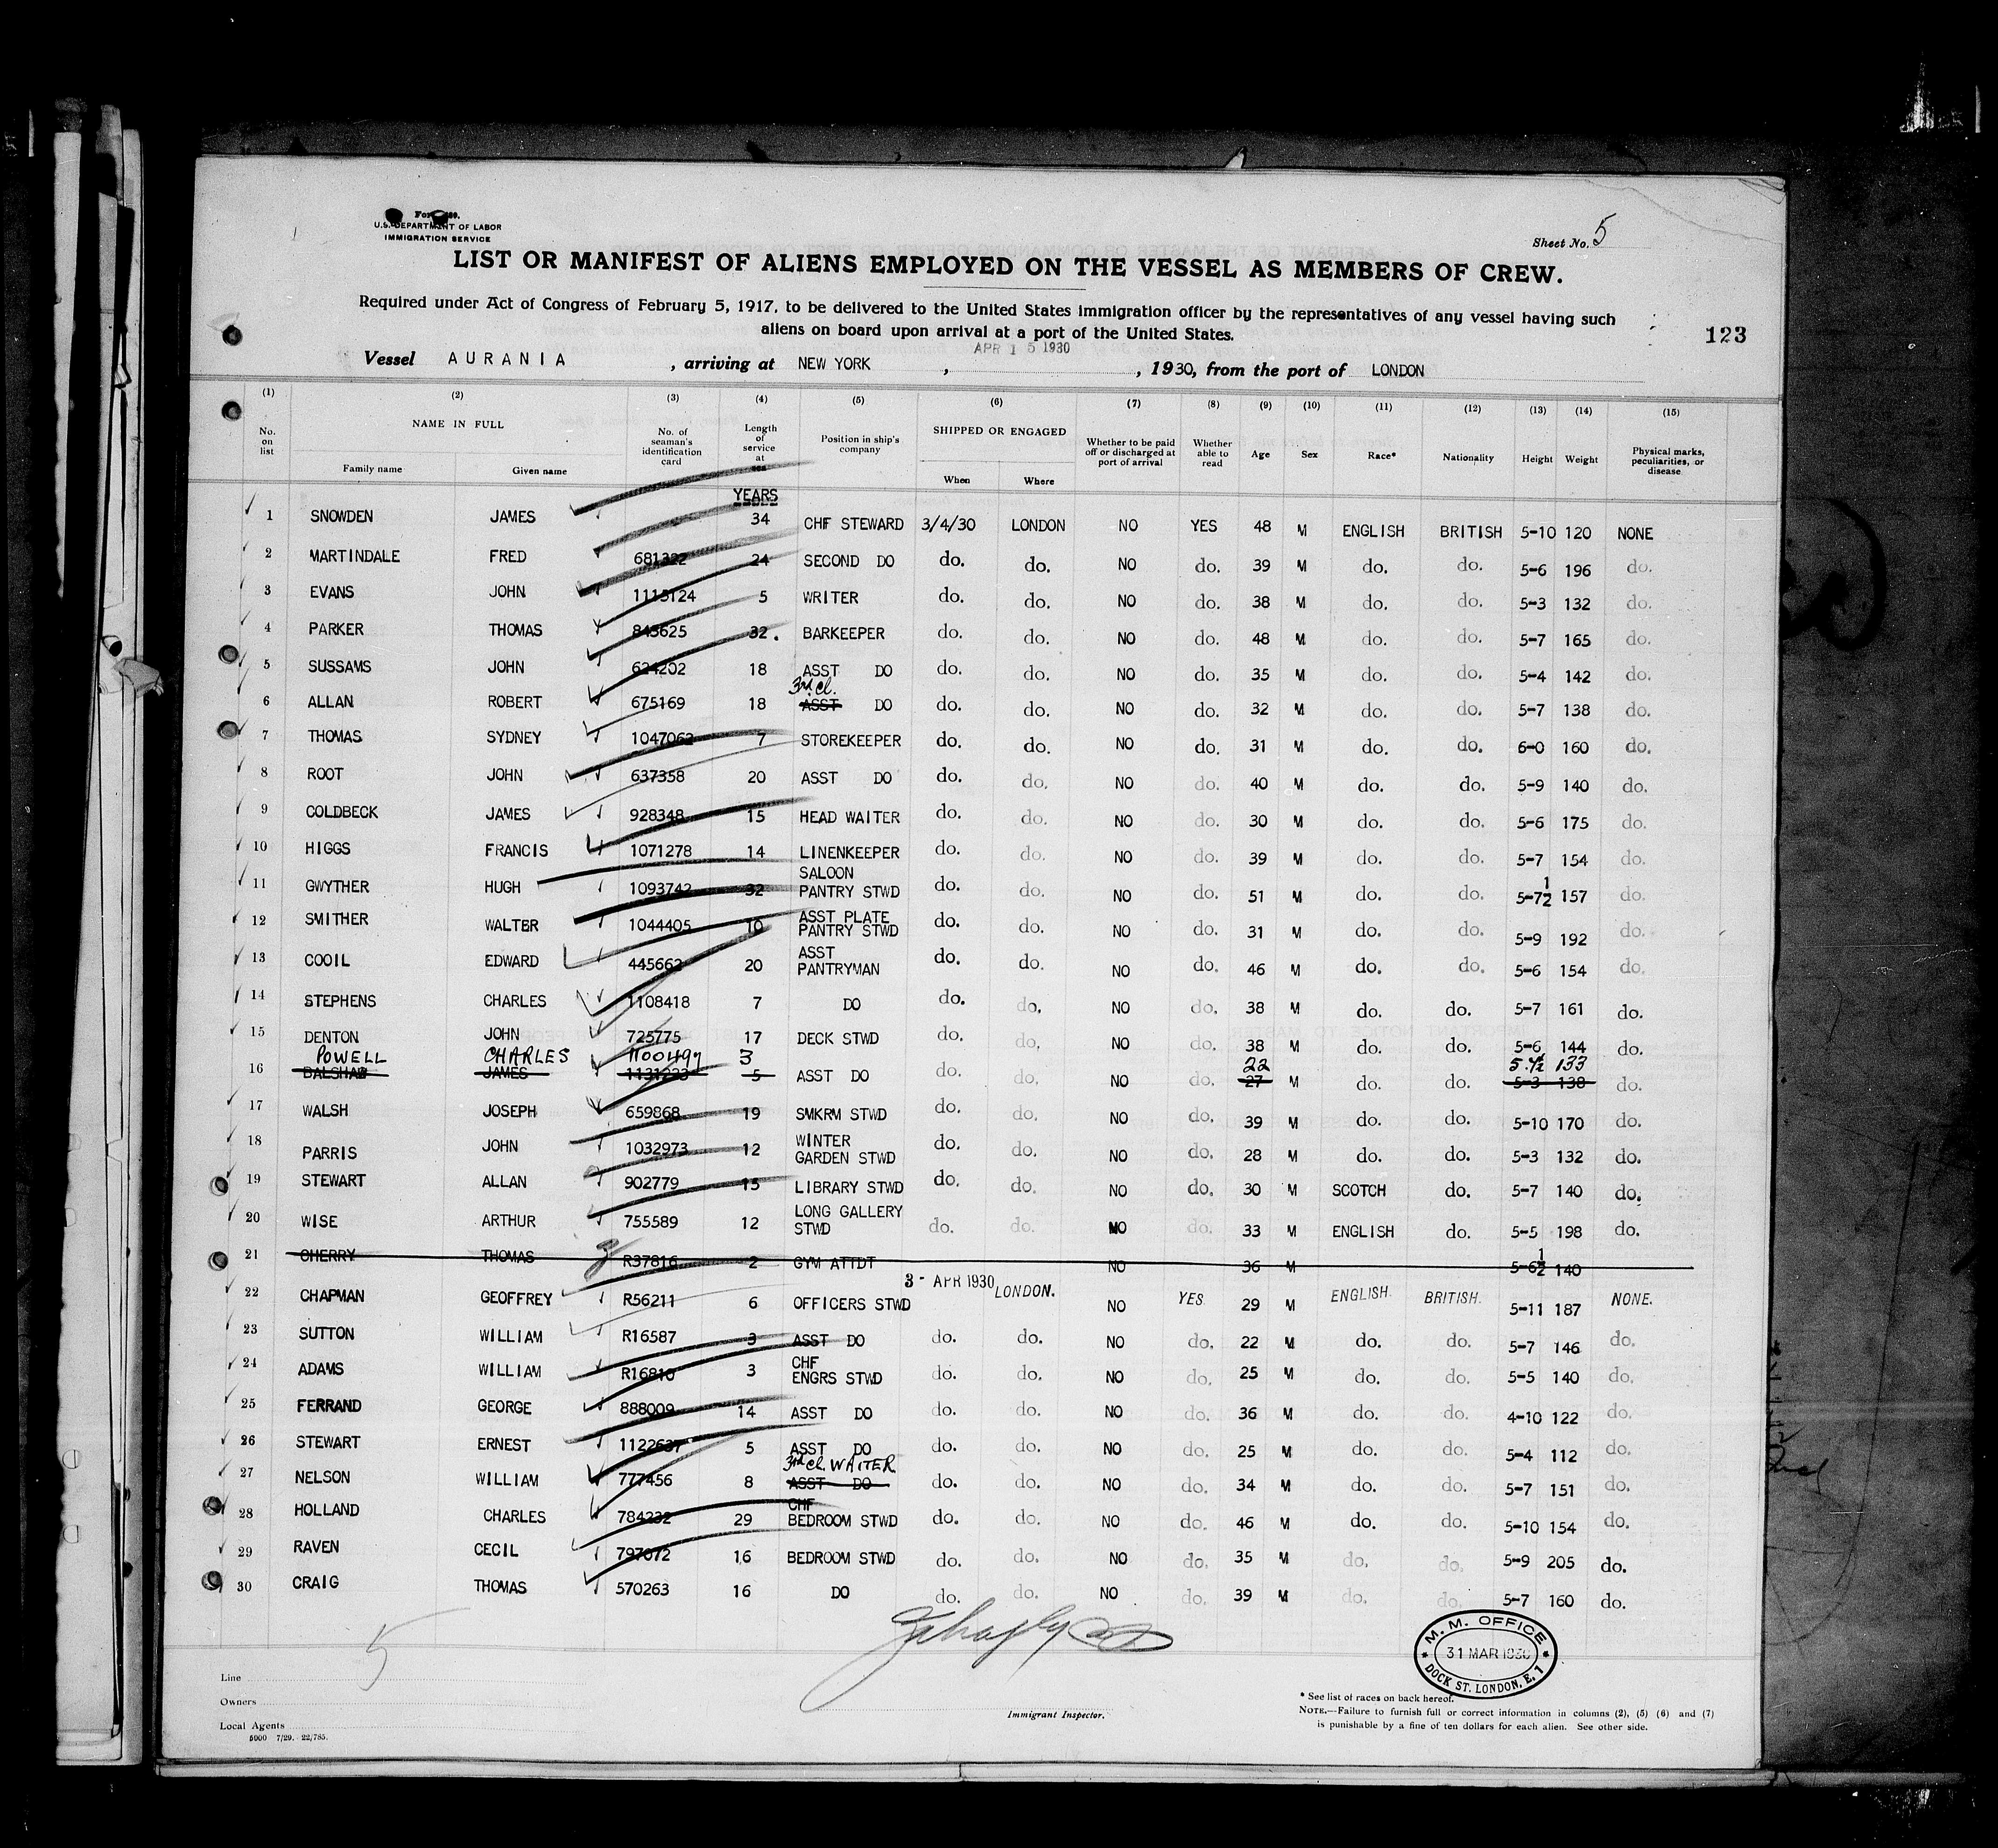 U.S. DEPARTMENT OF LABOR
IMMIGRATION SERVICE
Sheet No. 5
LIST OR MANIFEST OF ALIENS EMPLOYED ON THE VESSEL AS MEMBERS OF CREW.
Required under Act of Congress of February 5, 1917, to be delivered to the United States immigration officer by the representatives of any vessel having such
aliens on board upon arrival at a port of the United States.
123
APR 15 1930
Vessel AURANIA, arriving at NEW YORK, , 1930, from the port of LONDON
(1) (2) (3) (4) (5) (6) (7) (8) (9) (10) (11) (12) (13) (14) (15)
No. on list NAME IN FULL Family name Given name No. of seaman's identification card Length of service at sea Position in ship's company SHIPPED OR ENGAGED When Where Whether to be paid off or discharged at port of arrival Whether able to read Age Sex Race* Nationality Height Weight Physical marks, peculiarities, or disease
YEARS
1 SNOWDEN JAMES 34 CHF STEWARD 3/4/30 LONDON NO YES 48 M ENGLISH BRITISH 5-10 120 NONE
2 MARTINDALE FRED 681322 24 SECOND DO do. do. NO do. 39 M do. do. 5-6 196 do.
3 EVANS JOHN 1115124 5 WRITER do. do. NO do. 38 M do. do. 5-3 132 do.
4 PARKER THOMAS 843625 32. BARKEEPER do. do. NO do. 48 M do. do. 5-7 165 do.
5 SUSSAMS JOHN 624202 18 ASST DO do. do. NO do. 35 M do. do. 5-4 142 do.
3rd Cl.
6 ALLAN ROBERT 675169 18 ASST DO do. do. NO do. 32 M do. do. 5-7 138 do.
7 THOMAS SYDNEY 1047062 7 STOREKEEPER do. do. NO do. 31 M do. do. 6-0 160 do.
8 ROOT JOHN 637358 20 ASST DO do. do. NO do. 40 M do. do. 5-9 140 do.
9 COLDBECK JAMES 928348 15 HEAD WAITER do. do. NO do. 30 M do. do. 5-6 175 do.
10 HIGGS FRANCIS 1071278 14 LINENKEEPER do. do. NO do. 39 M do. do. 5-7 154 do.
SALOON
11 GWYTHER HUGH 1093742 32 PANTRY STWD do. do. NO do. 51 M do. do. 5-7½ 157 do.
ASST PLATE
12 SMITHER WALTER 1044405 10 PANTRY STWD do. do. NO do. 31 M do. do. 5-9 192 do.
ASST
13 COOIL EDWARD 445662 20 PANTRYMAN do. do. NO do. 46 M do. do. 5-6 154 do.
14 STEPHENS CHARLES 1108418 7 DO do. do. NO do. 38 M do. do. 5-7 161 do.
15 DENTON JOHN 725775 17 DECK STWD do. do. NO do. 38 M do. do. 5-6 144 do.
POWELL CHARLES 1100497 3 22 5.4½ 133
16 BALSHAW JAMES 1131233 5 ASST DO do. do. NO do. 27 M do. do. 5-3 138 do.
17 WALSH JOSEPH 659868 19 SMKRM STWD do. do. NO do. 39 M do. do. 5-10 170 do.
WINTER
18 PARRIS JOHN 1032973 12 GARDEN STWD do. do. NO do. 28 M do. do. 5-3 132 do.
19 STEWART ALLAN 902779 15 LIBRARY STWD do. do. NO do. 30 M SCOTCH do. 5-7 140 do.
LONG GALLERY
20 WISE ARTHUR 755589 12 STWD do. do. NO do. 33 M ENGLISH do. 5-5 198 do.
21 CHERRY THOMAS R37816 2 GYM ATTDT NO 36 M 5-6½ 140
22 CHAPMAN GEOFFREY R56211 6 OFFICERS STWD 3 - APR 1930 LONDON. NO YES. 29 M ENGLISH. BRITISH. 5-11 187 NONE.
23 SUTTON WILLIAM R16587 3 ASST DO do. do. NO do. 22 M do. do. 5-7 146 do.
CHF
24 ADAMS WILLIAM R16810 3 ENGRS STWD do. do. NO do. 25 M do. do. 5-5 140 do.
25 FERRAND GEORGE 888009 14 ASST DO do. do. NO do. 36 M do. do. 4-10 122 do.
26 STEWART ERNEST 1122637 5 ASST DO do. do. NO do. 25 M do. do. 5-4 112 do.
3rd Cl. WAITER
27 NELSON WILLIAM 777456 8 ASST DO do. do. NO do. 34 M do. do. 5-7 151 do.
CHF
28 HOLLAND CHARLES 784232 29 BEDROOM STWD do. do. NO do. 46 M do. do. 5-10 154 do.
29 RAVEN CECIL 797072 16 BEDROOM STWD do. do. NO do. 35 M do. do. 5-9 205 do.
30 CRAIG THOMAS 570263 16 DO do. do. NO do. 39 M do. do. 5-7 160 do.
5
M. M. OFFICE
31 MAR 1930
DOCK ST. LONDON, E. 1
Line
Owners
Local Agents
5000 7/29. 22/785.
Immigrant Inspector.
* See list of races on back hereof.
NOTE.—Failure to furnish full or correct information in columns (2), (5) (6) and (7)
is punishable by a fine of ten dollars for each alien. See other side.